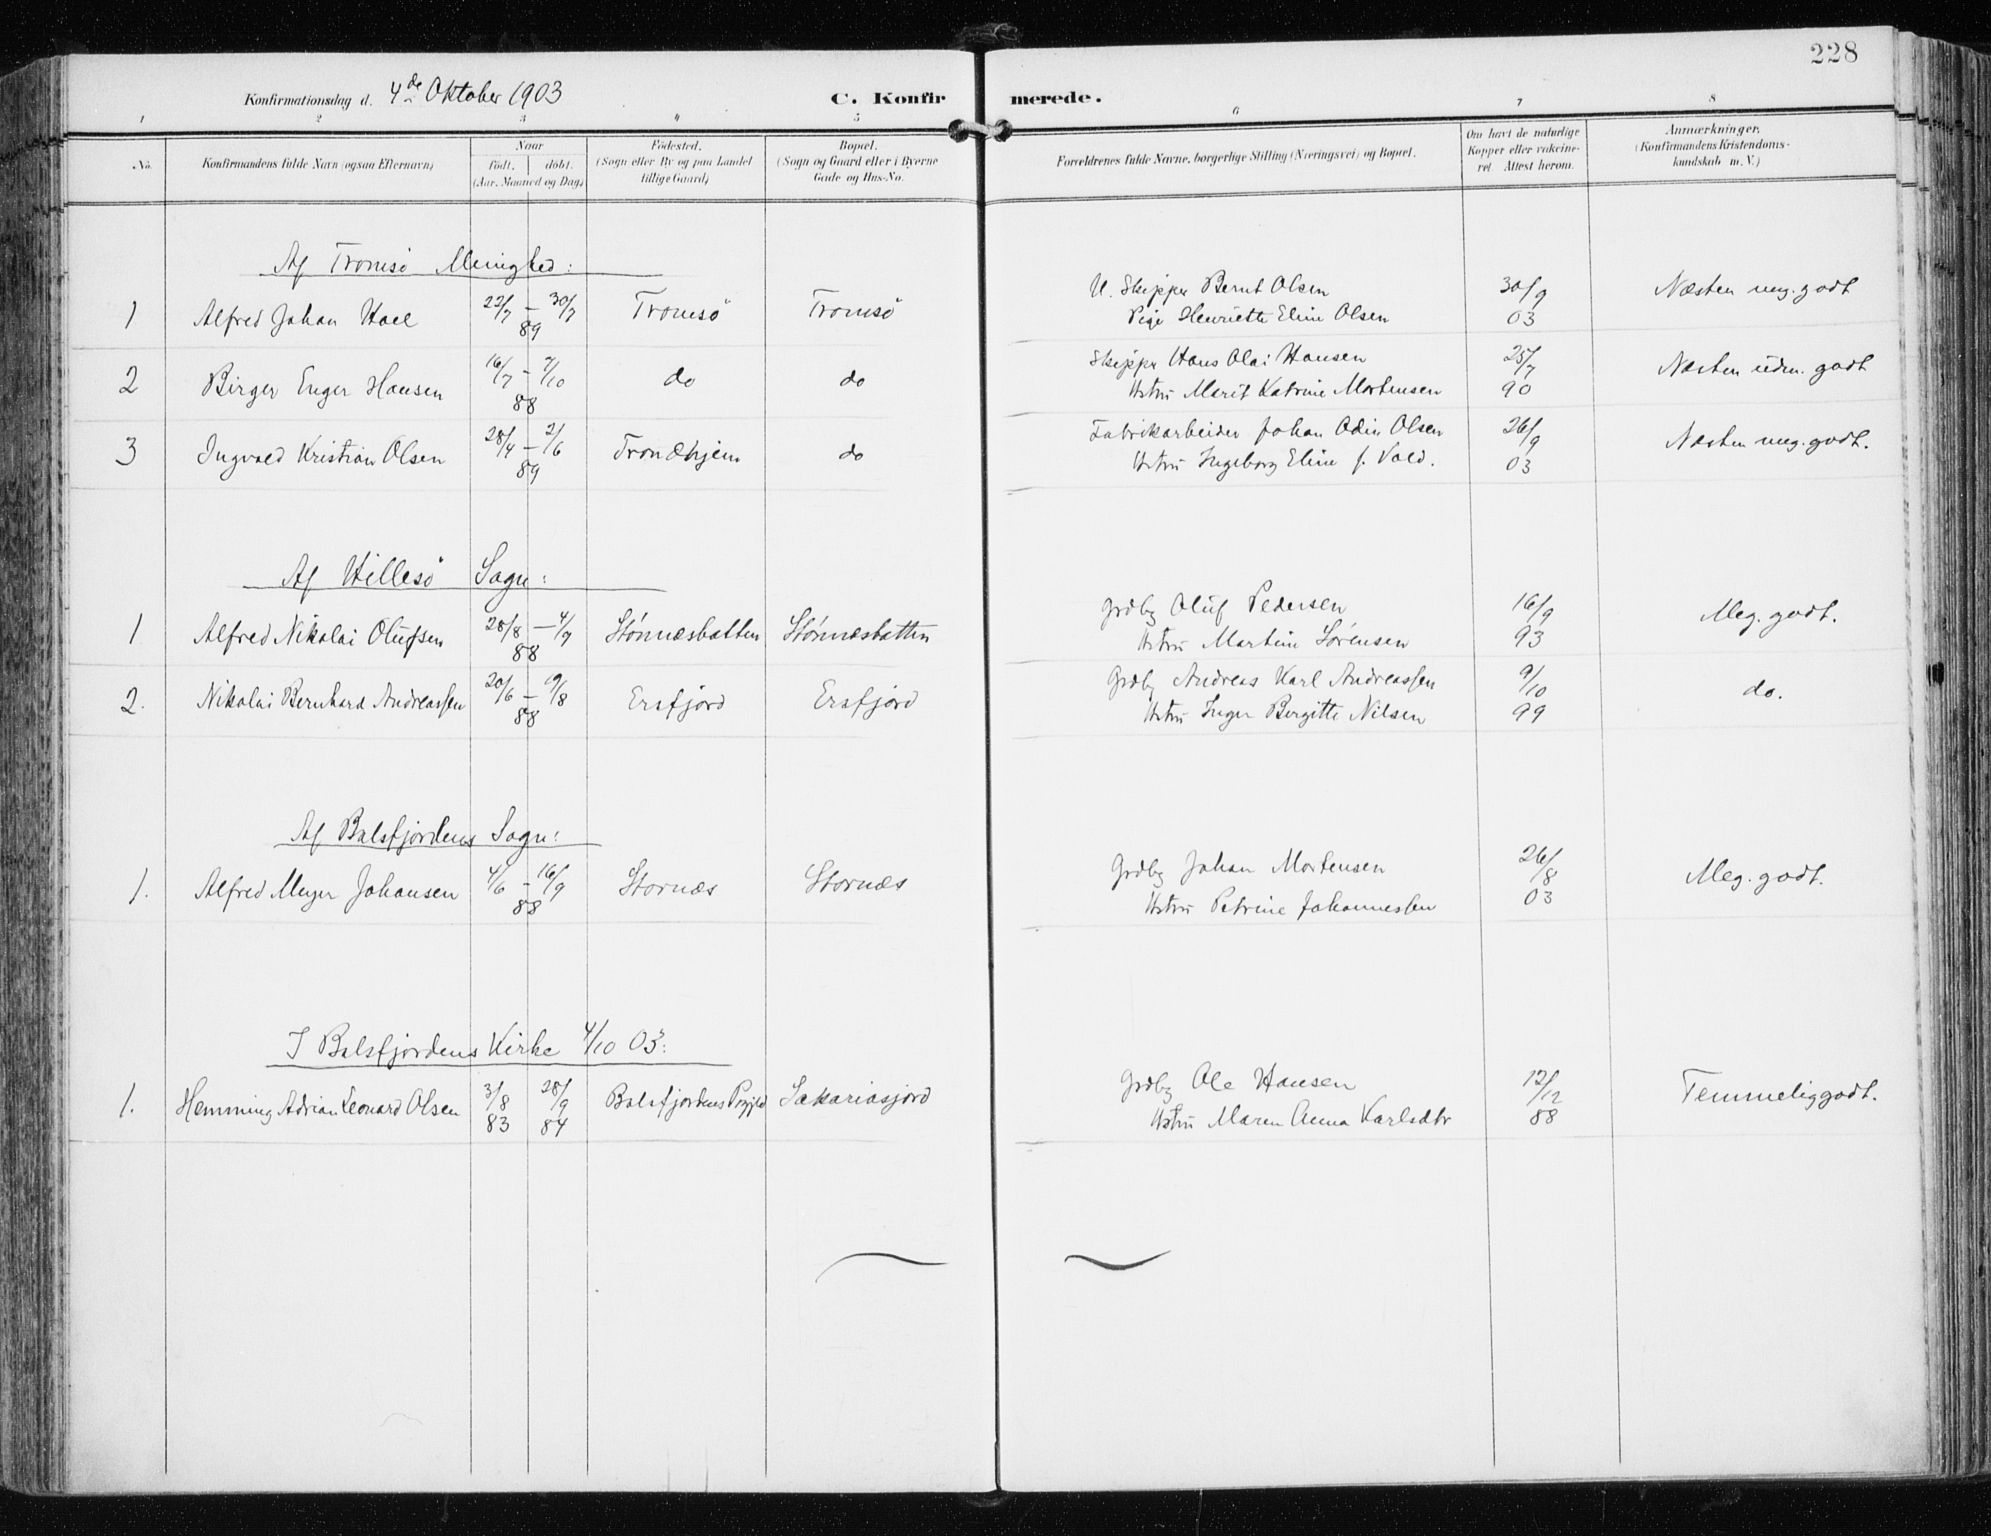 228
Konfirmationsdag d. 4de Oktober 1903 C. Konfirmerede.
1 2 3 4 5 6 7 8
No. Konfirmandens fulde Navn (ogsaa Efternavn) Naar født. døbt. (Aar, Maaned og Dag) Fødested. (Sogn eller By og paa Landet tillige Gaard) Bopæl. (Sogn og Gaard eller i Byerne Gade og Hus-No. Forældrenes fulde Navne, borgerlige Stilling (Næringsvei) og Bopæl. Om havt de naturlige Kopper eller vakcineret. Attest herom. Anmærkninger. (Konfirmandens Kristendomskundskab m. V.)
Af Tromsö Menighed:
1 Alfred Johan Hoel 22/7 – 30/7 89 Tromsö Tromsö U. Skipper Bernt Olsen 30/9 03 Næsten meg. godt
Pige Henriette Eline Olsen
2 Birger Enger Hansen 16/7 – 7/10 88 do do Skipper Hans Olai Hansen 25/7 90 Næsten udm. godt
Hstru Marit Katrine Mortensen
3 Ingvald Kristian Olsen 28/4 – 2/6 89 Trondhjem do Fabrikarbeider Johan Odin Olsen 26/9 03 Næsten meg. godt.
Hstru Ingeborg Eline f. Vold.
Af Hillesö Sogn:
1 Alfred Nikolai Olufsen 28/8 – 4/9 88 Stónnæsbotten Stónnæsbotten Grdbg Oluf Pedersen 16/9 93 Meg. godt.
Hstru Martine Sörensen
2. Nikolai Bernhard Andreassen 20/6 – 19/8 88 Ersfjord Ersfjord Grdbg Andreas Karl Andreassen 9/10 99 do.
Hstru Inger Bergitte Nilsen
Af Balsfjordens Sogn:
1. Alfred Meyer Johansen 4/6 – 16/9 88 Stornæs Stornæs Grdbg Johan Mortensen 26/8 03 Meg. godt.
Hstru Petrine Johannessen
I Balsfjordens Kirke 4/10 03:
1. Hemming Adrian Leonard Olsen 3/8 83 28/9 84 Balsfjordens Prgjld Sakariasjord Grdbg Ole Hansen 12/12 88 Temmelig godt.
Hstru Maren Anna Karlsdtr